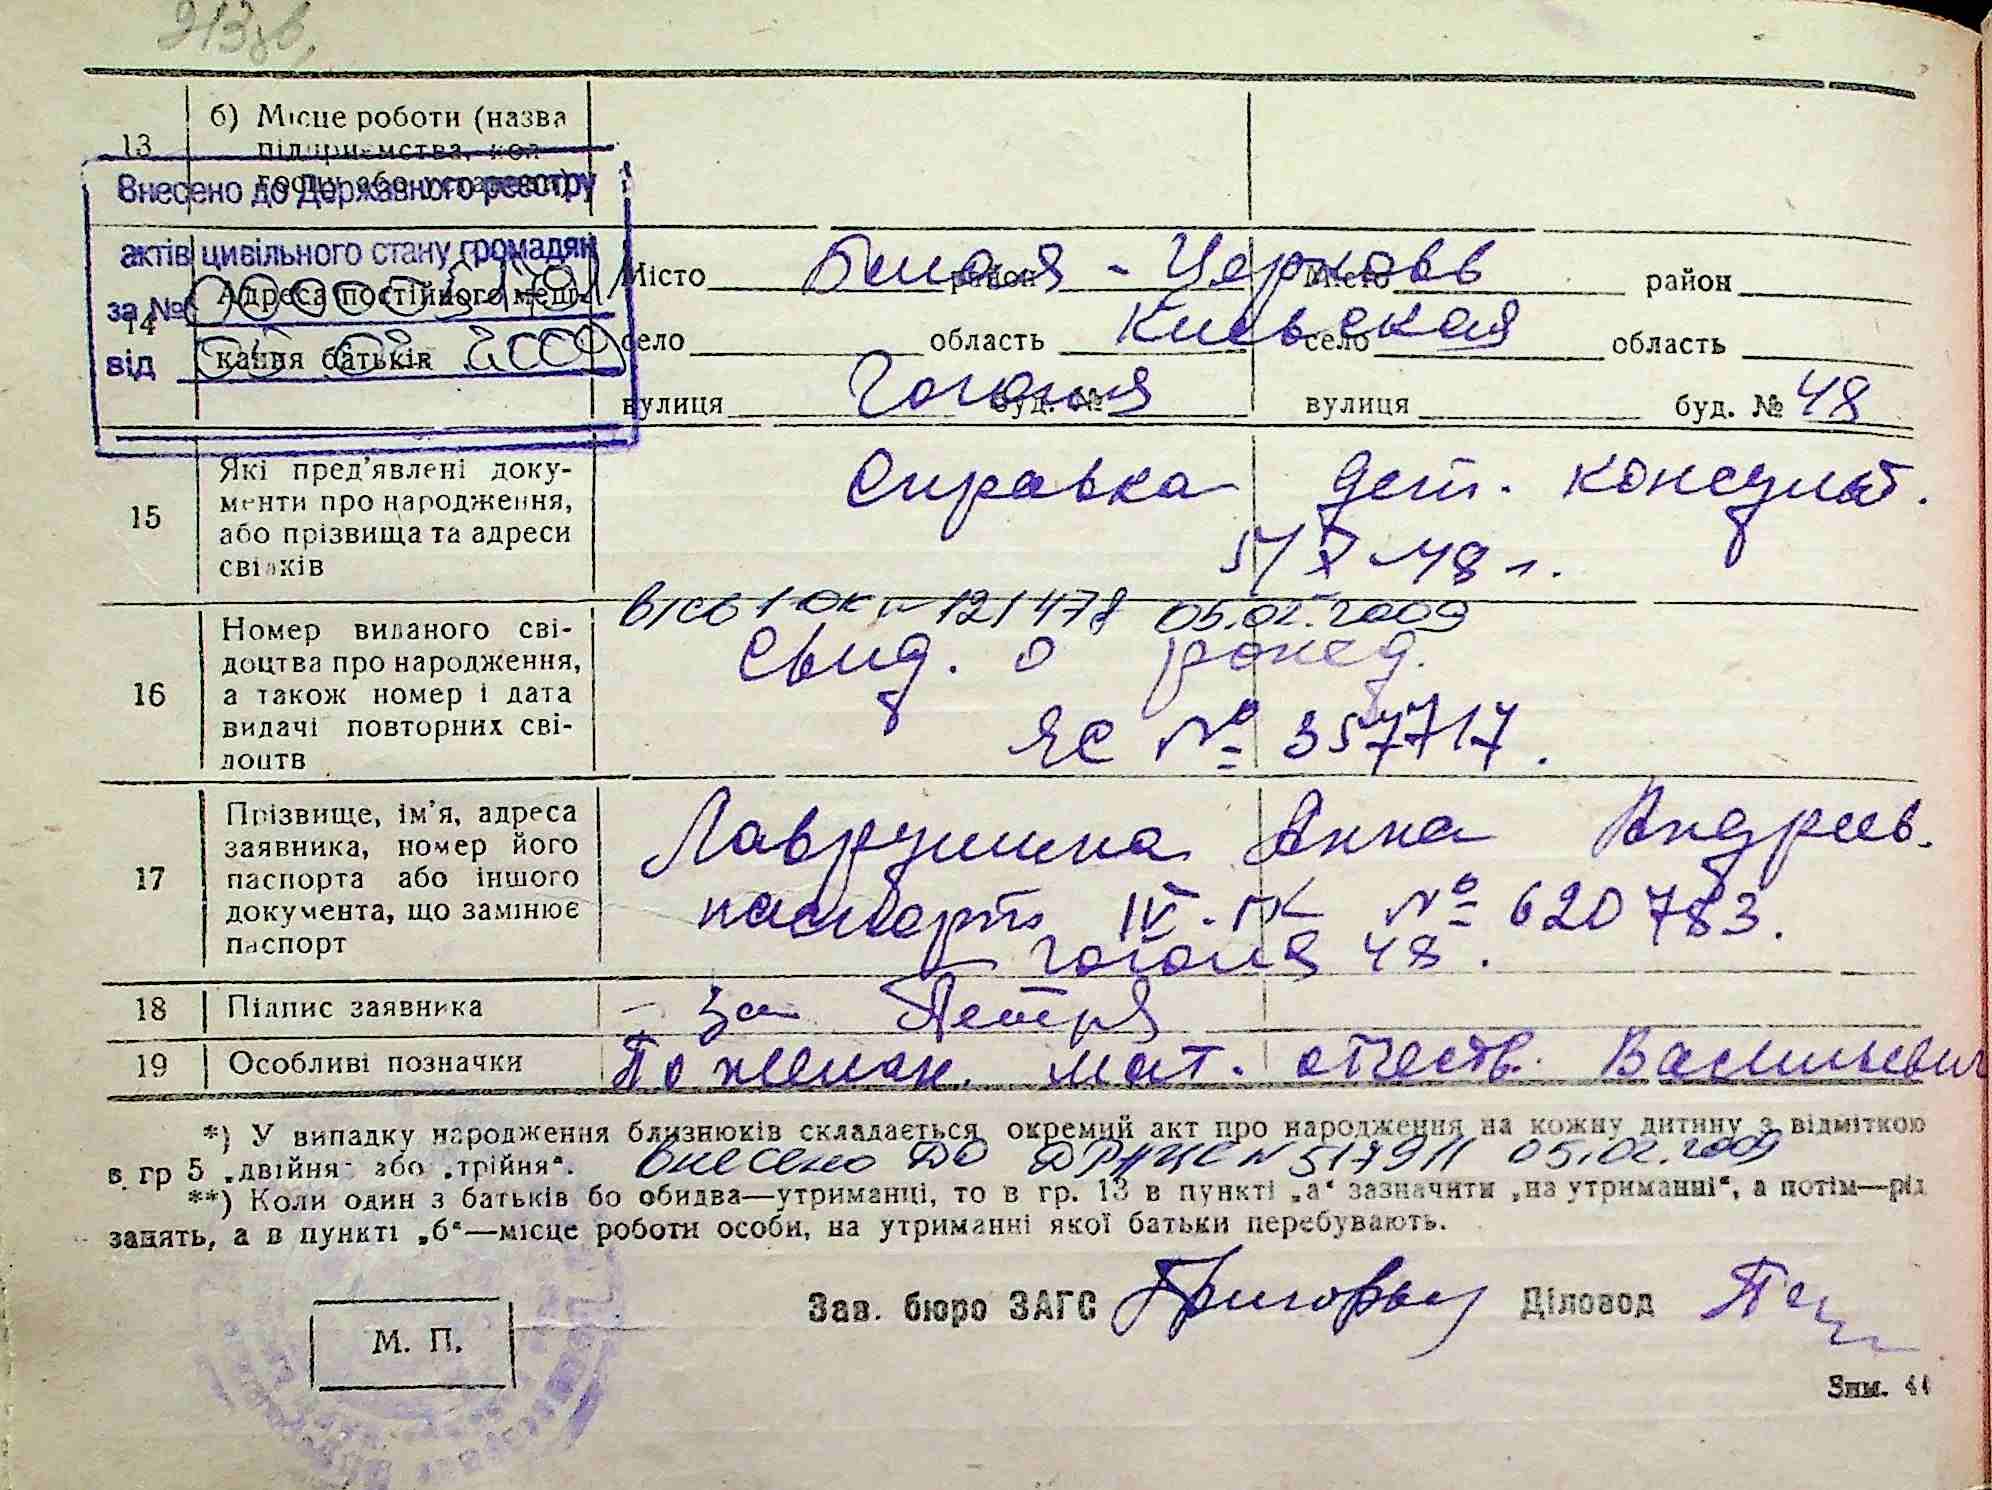 213 зв.
13
б) Місце роботи (назва
підприємства, кол-
госпу або установи)
Внесено до Державного реєстру
актів цивільного стану громадян
за №
від 05 02 2009
14
Адреса постійного меш-
кання батьків
Місто Белая - Церковь район Місто район
село область Киевская село область
вулиця Гоголя буд. № вулиця буд. № 48
15
Які пред'явлені доку-
менти про народження,
або прізвища та адреси
свідків
Справка дет. консульт.
5/X-48 г.
16
Номер виданого сві-
доцтва про народження,
а також номер і дата
видачі повторних сві-
доцтв
в/св 1-ОК № 121478 05.02.2009
Свид. о рожд.
ЯС № 357717.
17
Прізвище, ім'я, адреса
заявника, номер його
паспорта або іншого
документа, що замінює
паспорт
Лаврушина Анна Андреев.
паспорт IV-ГК № 620783.
Гоголя 48.
18
Підпис заявника
- За
19
Особливі позначки
По желан. мат. отчеств. Васильевич
*) У випадку народження близнюків складається окремий акт про народження на кожну дитину з відміткою
в гр 5 „двійня“ або „трійня“. Внесено до ДРАЦС № 517911 05.02.2009
**) Коли один з батьків бо обидва—утриманці, то в гр. 13 в пункті „а“ зазначити „на утриманні“, а потім—рід
занять, а в пункті „б“—місце роботи особи, на утриманні якої батьки перебувають.
Зав. бюро ЗАГС Діловод
М. П.
Зим. 44